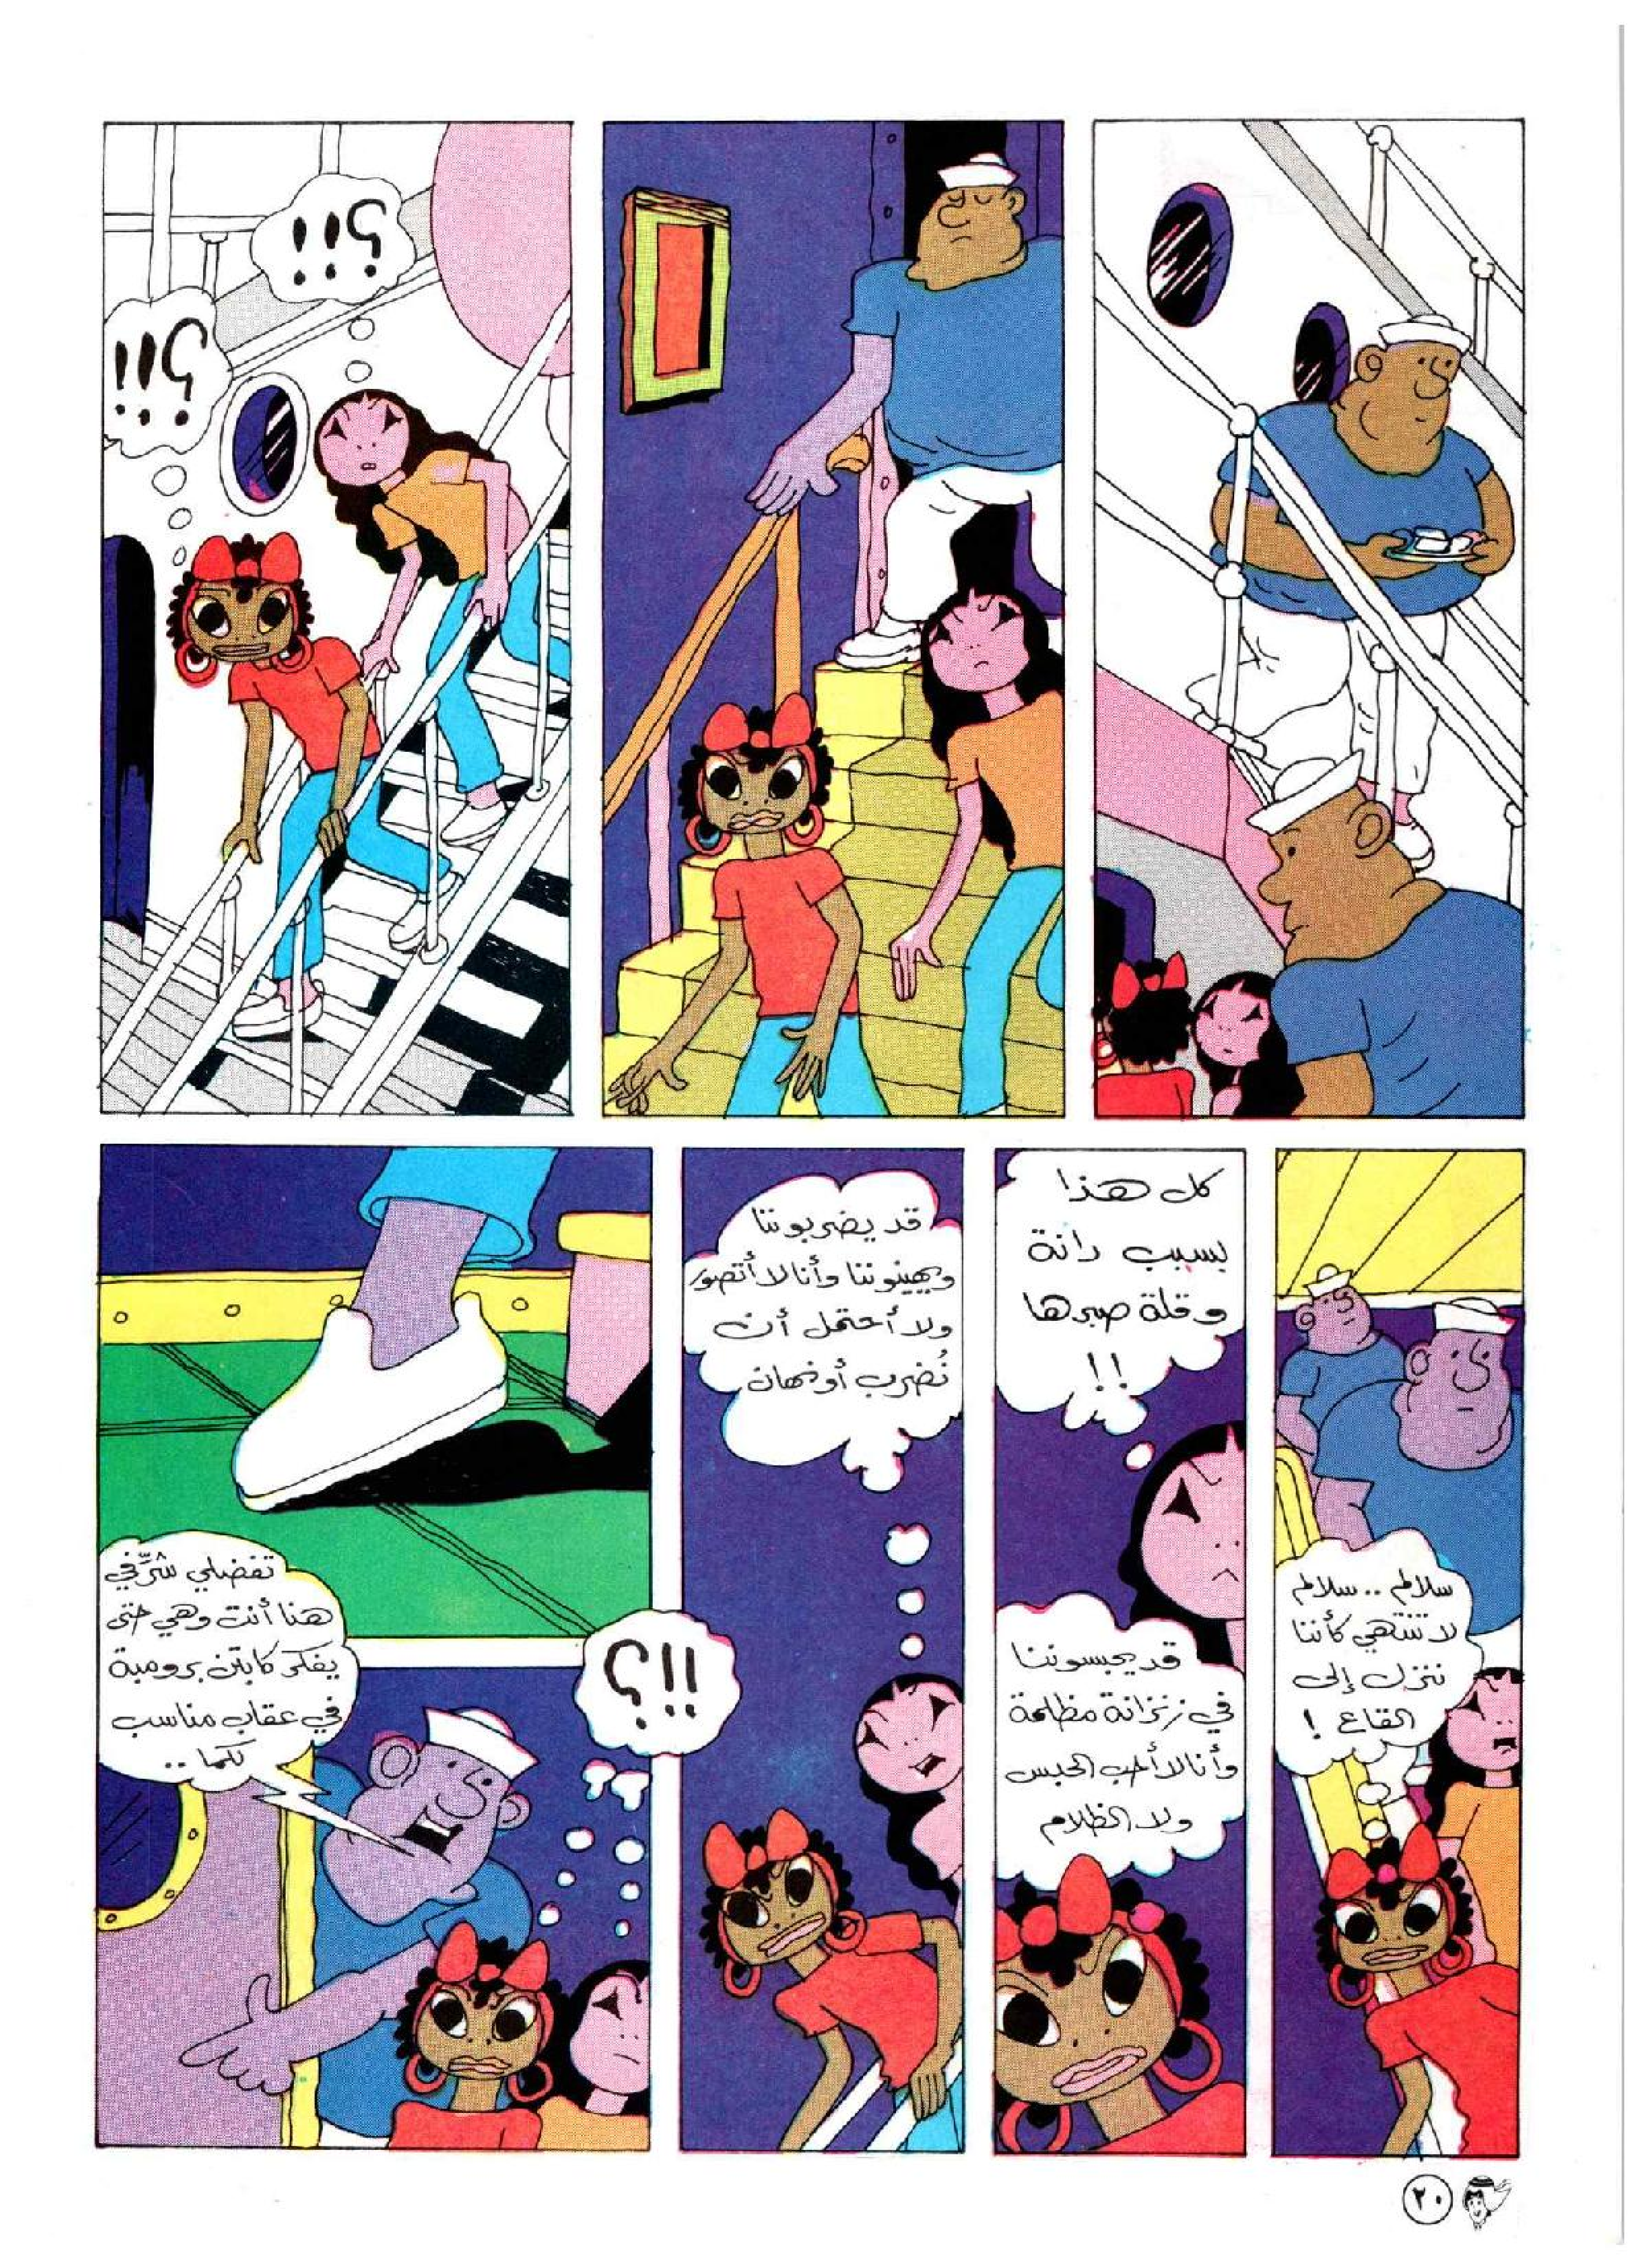 ؟!!
؟!!
سلالم .. سلالم
لا تنتهي كأننا
ننزل إلى
القاع !
كل هذا
بسبب دانة
وقلة صبرها
!!
قد يحبسوننا
في زنزانة مظلمة
وأنا لا أحب الحبس
ولا الظلام
قد يضربوننا
ويهينوننا وأنا لا أتصور
ولا أحتمل أن
نُضرب أو نهان
تفضلي شرّفي
هنا أنت وهي حتى
يفكر كابتن برومبة
في عقاب مناسب
لكما ..
؟!!
٢٠